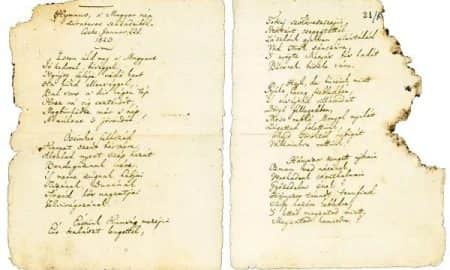 Hymnus, a' Magyar nép
zivataros századaiból.
Cseke, Január. 22d.
1823.
Isten áldd meg a' Magyart
Jó kedvvel, bőséggel,
Nyújts feléje védő kart
Ha küzd ellenséggel;
Bal sors a' kit régen tép,
Hozz rá víg esztendőt,
Megbűnhödte már e' nép
A' multat 's jövendőt!
Őseinket felhozád
Kárpát szent bérczére,
Általad nyert szép hazát
Bendegúznak vére.
'S merre zúgnak habjai
Tiszának, Dunának,
Árpád hős magzatjai
Felvirágozának.
Értünk Kunság mezein
Ért kalászt lengettél,
21/6
Tokaj szőlővesszein
Nektárt csepegtettél.
Zászlónk gyakran plántálád
Vad Török sánczára,
'S nyögte Mátyás bús hadát
Bécsnek büszke vára.
Hajh, de bűneink miatt
Gyúlt harag kebledben,
'S elsújtád villámidat
Dörgő fellegedben,
Most rabló Mongol nyilát
Zúgattad felettünk,
Majd Töröktől rabigát
Vállainkra vettünk.
Hányszor zengett ajkain
Ozman vad népének
Vert hadunk csonthalmain
Győzedelmi ének!
Hányszor támadt tenfiad
Szép hazám kebledre,
'S lettél magzatod miatt
Magzatod hamvvedre!